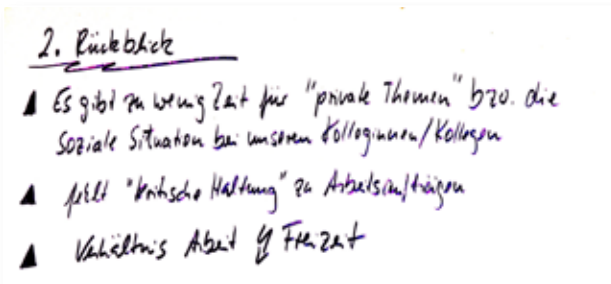 2. Rückblick
Es gibt zu wenig Zeit für "private Themen" bzw. die
Soziale Situation bei unseren Kolleginnen/Kollegen
fehlt "kritische Haltung" zu Arbeitsaufträgen
Verhältnis Arbeit Freizeit